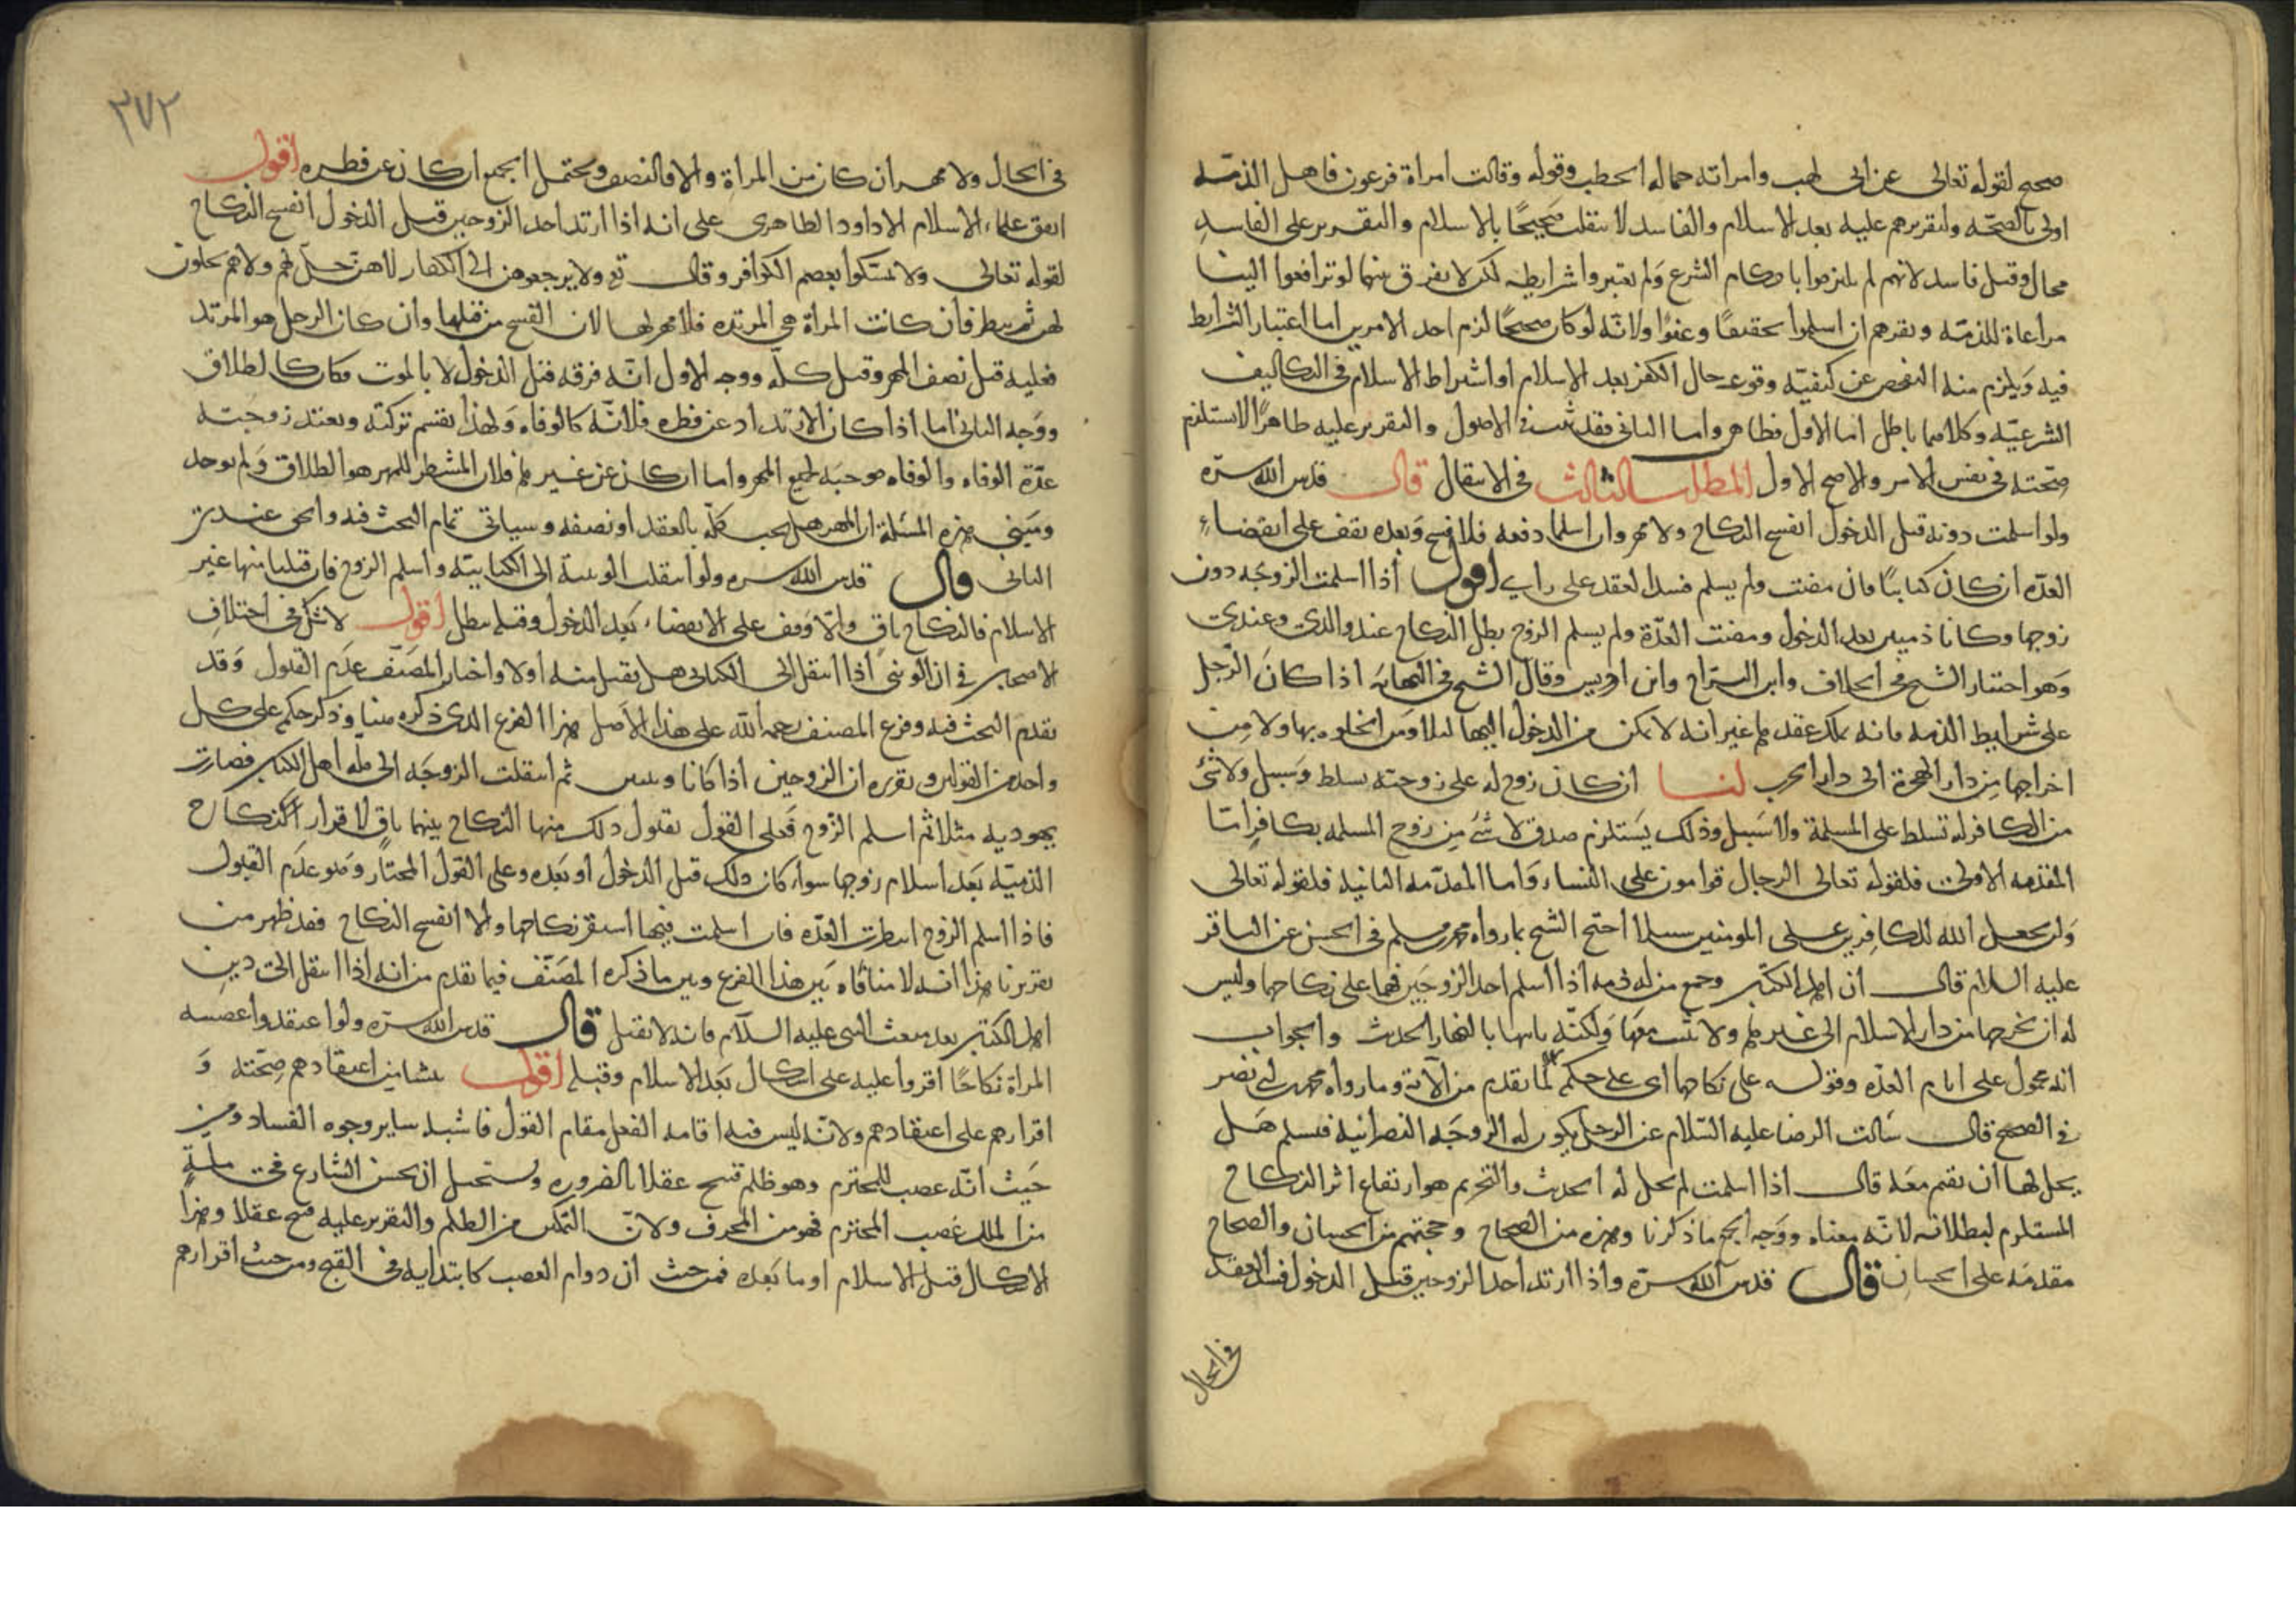 صحيح لقوله تعالى عن ابى لهب وامراته حماله الحطب وقوله وقالت امراة فرعون فاهل الذمّة
اولى بالصحّة ولتقريرهم عليه بعد الاسلام والفاسد لا ينقلب صَحيحًا بالاسلام والتقرير على الفاسد
محال وقيل فاسد لانهم لم يلتزموا باحكام الشرع وَلم يعتبروا شرايطه لكن لا يفرق بينهما لو ترافعوا الينا
مراعاة للذمّة ويقرهم ان اسلموا تخفيفًا وعفوًا ولانّه لو كان صحيحًا لزم احد الامرين اما اعتبار الشرايط
فيه وَيلزم منه التفحص عن كيفيّة وقوعه حال الكفر بعد الاسلام او اشتراط الاسلام فى التكاليف
الشرعيّة وكلاهما باطل اما الاول فظاهر واما الثانى فقد ثبت فى الاصول والتقرير عليه ظاهرًا لا يستلزم
صحّته فى نفس الامر والاصح الاول المطلب الثالث فى الانتقال قال قدس الله سرّه
ولو اسلمت دونه قبل الدخول انفسخ النكاح ولا مهر وان اسلما دفعه فلا فسخ وَبعده يقف على انقضاء
العدّه ان كان كتابيًا فان مضت ولم يسلم فسد العقد على راى اقول اذا اسلمت الزوجَه دون
زوجها وكانا ذميين بعد الدخول ومضت العدّة ولم يسلم الزوج بطل النكاح عند والدى وعندى
وَهو اختيار الشيخ فى الخلاف وابن البرّاج وابن ادريس وقال الشيخ فى النهايَه اذا كانَ الرّجل
على شرايط الذمه فانه يملك عقدها غير انه لا يمكن من الدخول اليها ليلا ومن الخلوه بها ولا مِن
اخراجها مِن دار الهجرة الى دار الحرب لنا ان كل زوج له على زوجته تسلط وَسبيل ولا شئ
من الكافر له تسلط على المسلمة ولا سَبيل وذلك يَستلزم صدق لا شئ مِن زوج المسلمه بكافر امّا
المقدّمه الاولى فلقوله تعالى الرجال قوامون على النساء وَاما المقدّمه الثانيه فلقوله تعالى
وَلن يجعل الله للكافِرين على المومنين سبيلا احتج الشيخ بما رواه محمد بن مسلم فى الحسن عن الباقر
عليه السلام قال ان اهل الكتاب وجميع من له ذمه اذا اسلم احد الزوجَين فهما على نكاحهما وليس
له ان يخرجها من دار الاسلام الى غيرها ولا يَبيت معَها وَلكنّه ياتيها بالنهار الحديث والجواب
انه محمول على ايام العدّه وقوله على نكاحهما اى على حكمه لما تقدم من الآية وما رواه احمد بن ابى نصر
فى الصحيح قال سَالت الرضا عليه السّلام عن الرجل يكون له الزوجَه النصرانيه فتسلم هَل
يحل لها ان تقيم معَه قال اذا اسلمت لم تحل له الحديث والتحريم هو ارتفاع اثر النكاح
المستلزم لبطلانه لانّه معناه ووَجه الحجّ ما ذكرنا وهذه من الصحاح وحجتهم من الحسان والصحاح
مقدمَه على الحسان قال قدس الله سرّه واذا ارتد احد الزوجين قبل الدخول فسد العقد
فى الحال
٣٧٢
فى الحال ولا مهر ان كان من المراة والا فالنصف ويحتمل الجميع ان كان عن فطره اقول
اتفق علماء الاسلام الا داود الظاهرى على انه اذا ارتد احد الزوجين قبل الدخول انفسخ النكاح
لقوله تعالى ولا تمسّكوا بعصم الكوافر وقال تع ولا يرجعوهن الى الكفار لا هن حلّ لهم ولا هم يحلون
لهن ثم ينظر فان كانت المراة هى المرتده فلا مهر لها لان الفسخ من قبلها وان كان الرجل هو المرتد
فعليه قيل نصف المهر وقيل كلّه ووجه الاول انّه فرقه قبل الدخول لا بالموت فكان كالطلاق
ووَجه الثانى اما اذا كان الارتداد عن فطره فلانّه كالوفاه وَلهذا يقسم تركته وتعتد زوجته
عدّة الوفاه والوفاه موجبَه لجميع المهر واما ان كان عن غيرها فلان المشطر للمهر هو الطلاق وَلم يوجد
ومبنى هذه المسئلة ان المهر هل يجب كلّه بالعقد او نصفه وسياتى تمام البحث فيه والحق عندى
الثانى قال قدس الله سره ولو انتقلت الوثنية الى الكتابيّه واسلم الزوج فان قبلنا منها غير
الاسلام فالنكاح باقٍ والّا وقف على الانقضاء بَعد الدخول وقبله يبطل اقول لا شك فى اختلاف
الاصحاب فى ان الوثنى اذا انتقل الى الكتابى هل يقبل منه او لا واختار المصَنّف عدَم القبول وَقد
تقدم البحث فيه وفرع المصنف رحمه الله على هذا الاصل هذا الفرع الذى ذكره هنا وذكر حكمه على كل
واحد من القولين وتقريره ان الزوجين اذا كانا وثنيين ثم انتقلت الزوجَه الى ملّه اهل الكتاب فصارت
يهوديه مثلا ثم اسلم الزّوج فَعلى القول بقبول ذلك منها النكاح بينهما باقٍ لاقرار النكاح
الذميّه بَعد اسلام زوجها سواء كان ذلك قبل الدخول او بَعده وعلى القول المختار وَهو عدَم القبول
فاذا اسلم الزوج انتظرت العدّه فان اسلمت فيها استقر نكاحهما والا انفسخ النكاح فقد ظهر من
تقريرنا هذا انه لا منافاه بَين هذا الفرع وبين ما ذكره المصَنّف فيما تقدم من انه اذا انتقل الى دين
اهل الكتاب بعد مبعث النبى عليه السلآم فانه لا يقبل قال قدس الله سرّه ولو اعتقدوا غصبيه
المراة نكاحًا اقروا عليه على اشكال بَعد الاسلام وقبله اقول ينشا من اعتقادهم صِحّته وَ
اقرارهم على اعتقادهم ولانّه ليس فيه اقامه الفعل مقام القول فاشبه ساير وجوه الفساد ومن
حَيث انّه غصب للمحترم وهو ظلم قبيح عقلا بالضروره ويستحيل ان يحسن الشارع فى ملّةٍ
من الملل غصب المحترم فهو من المحرف ولانّ التمكين من الظلم والتقرير عليه قبيح عقلا وهذا
الاشكال قبل الاسلام او ما بَعده فمن حيث ان دوام الغصب كابتدايه فى القبح ومن حيث اقرارهم